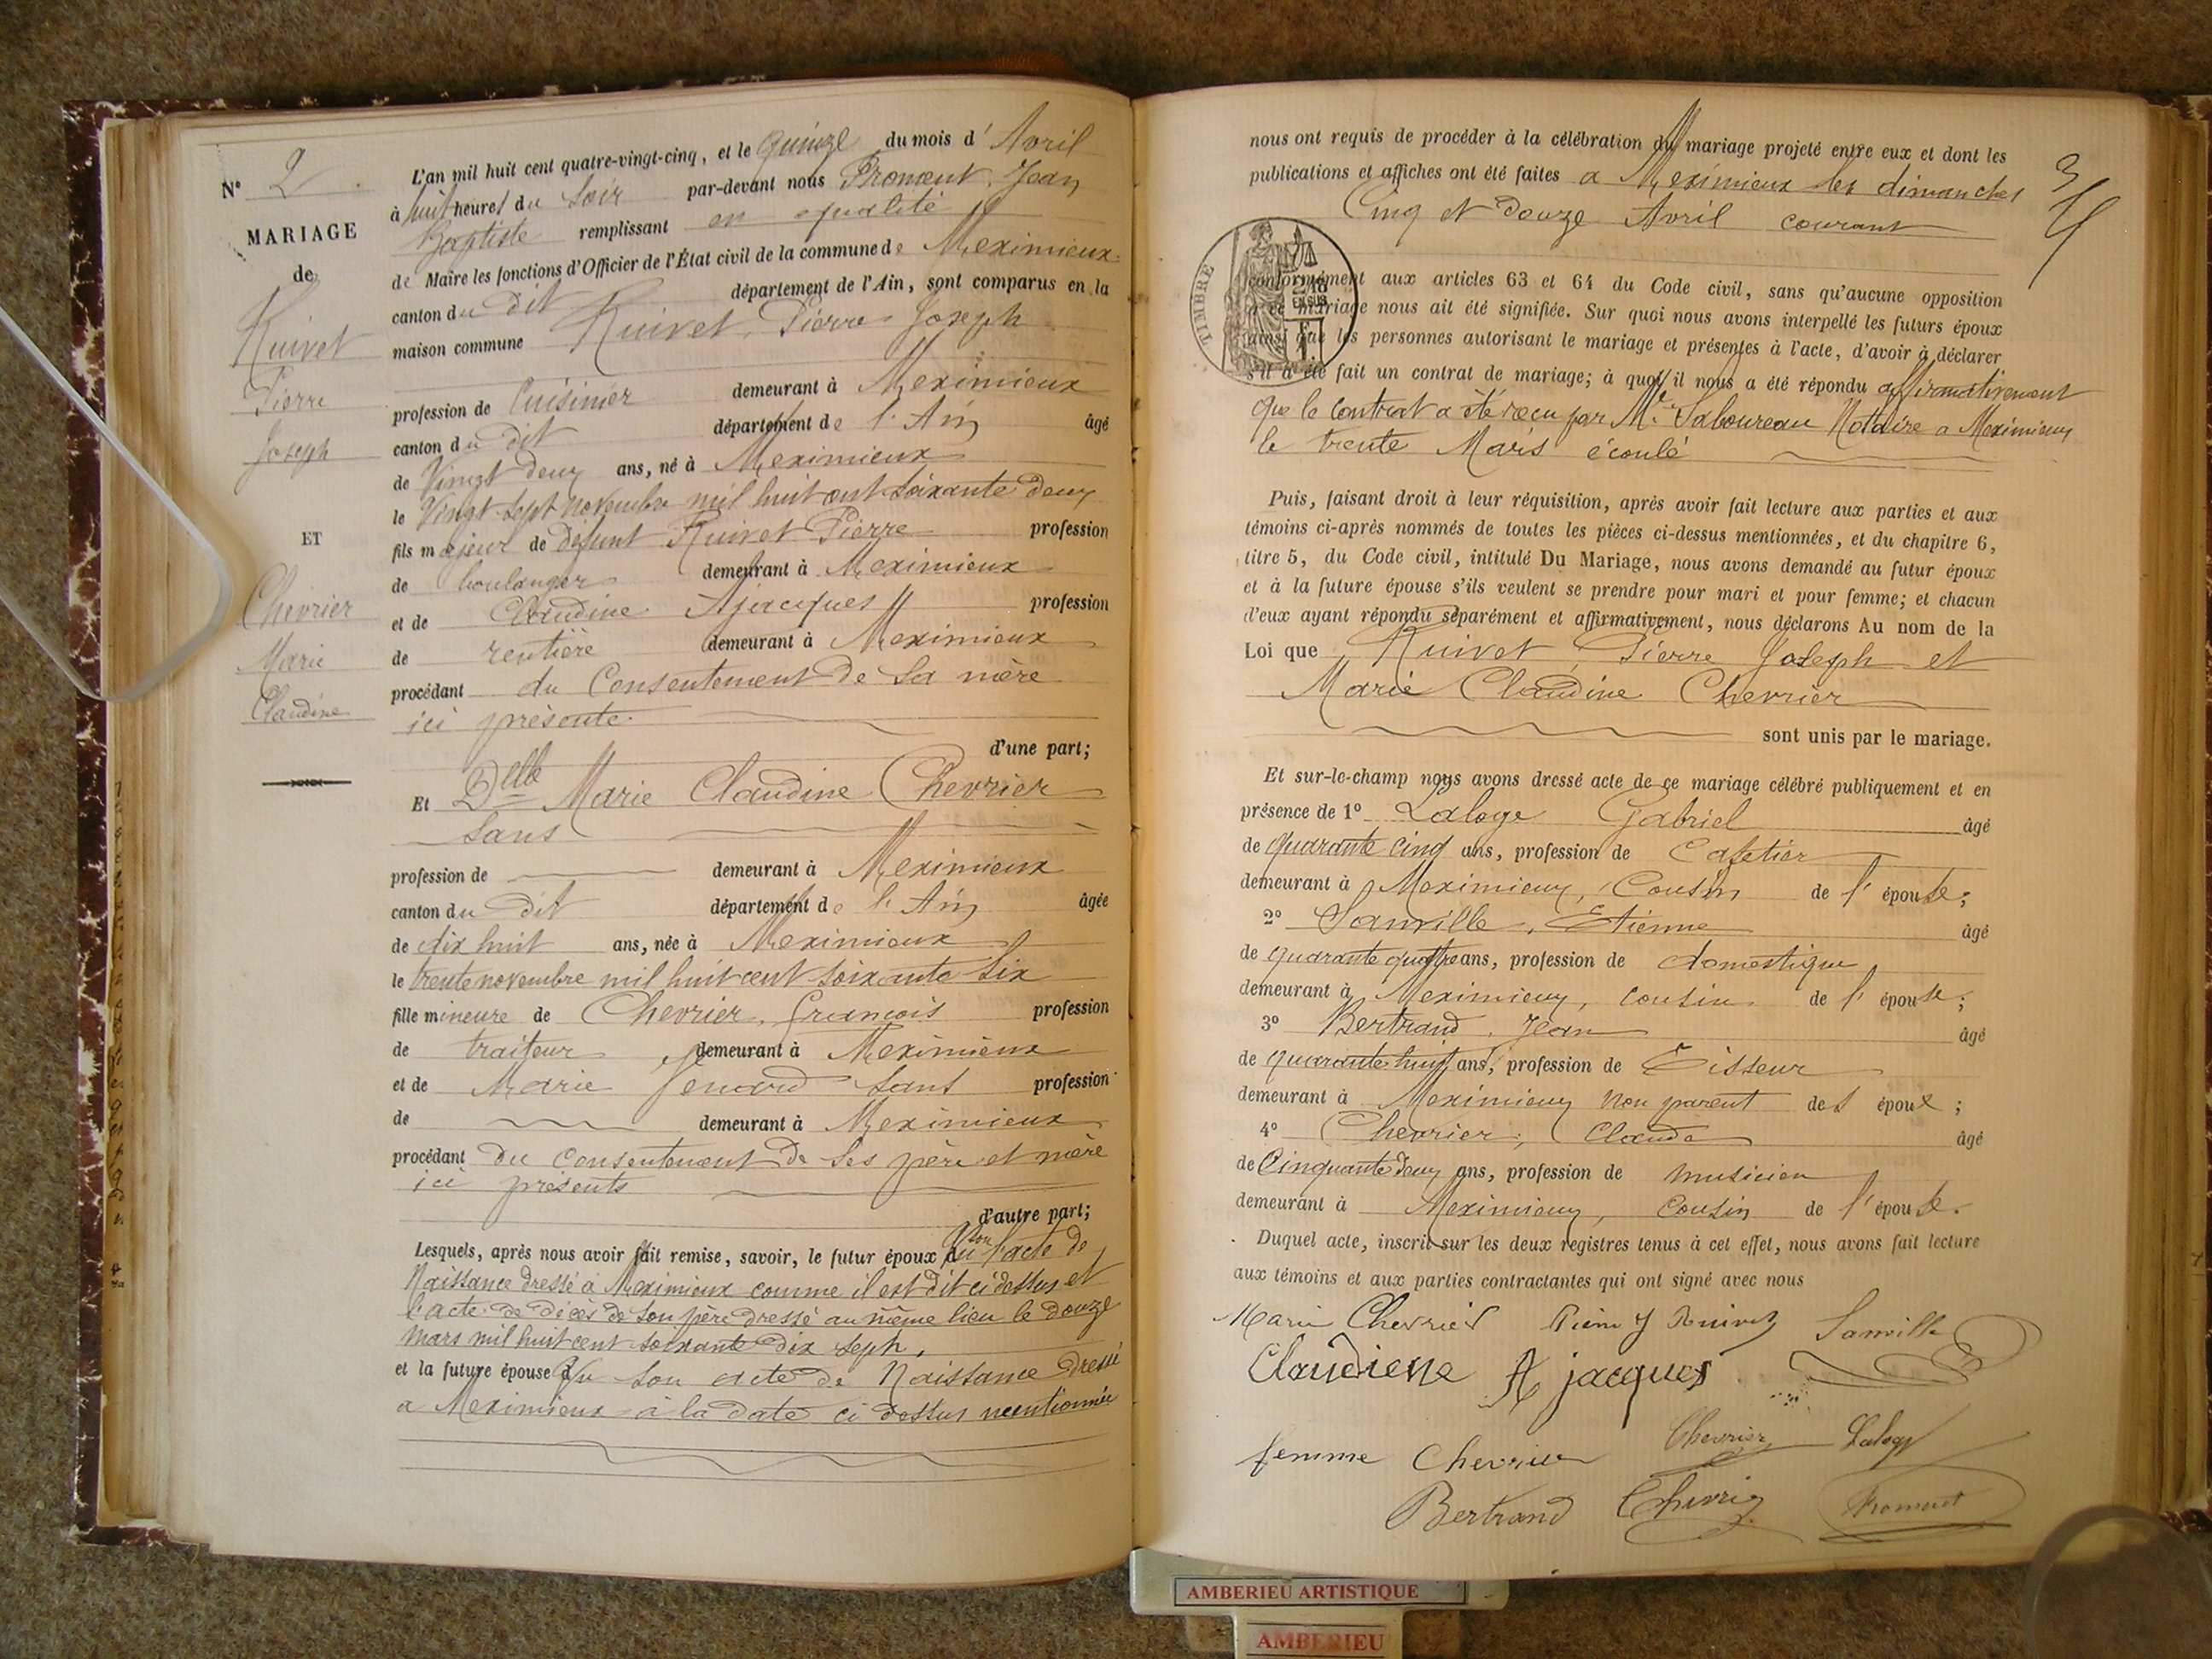 N° 2
MARIAGE
de
Ruivet
Pierre
Joseph
ET
Chevrier
Marie
Claudine
L'an mil huit cent quatre-vingt-cinq, et le quinze du mois d' Avril
à huit heures du Soir par-devant nous Froment, Jean
Baptiste remplissant en qualité
de Maire les fonctions d'Officier de l'État civil de la commune de Meximieux
canton du dit département de l'Ain, sont comparus en la
maison commune Ruivet, Pierre Joseph
profession de Cuisinier demeurant à Meximieux
canton du dit département de l'Ain âgé
de Vingt deux ans, né à Meximieux
le Vingt-sept novembre mil huit cent soixante deux
fils majeur de défunt Ruivet Pierre profession
de boulanger demeurant à Meximieux
et de Claudine Ajacques profession
de rentière demeurant à Meximieux
procédant du Consentement de sa mère
ici présente.
d'une part;
Et Delle Marie Claudine Chevrier
sans
profession de demeurant à Meximieux
canton du dit département de l'Ain âgée
de dix huit ans, née à Meximieux
le trente novembre mil huit cent soixante six
fille mineure de Chevrier, François profession
de traiteur demeurant à Meximieux
et de Marie Jenard sans profession
de demeurant à Meximieux
procédant du consentement de ses père et mère
ici présents
d'autre part;
Lesquels, après nous avoir fait remise, savoir, le futur époux du l'acte de
Naissance dressé à Meximieux comme il est dit ci dessus et
l'acte de décès de son père dressé au même lieu le douze
mars mil huit cent soixante dix sept,
et la future épouse du son acte de Naissance dressé
a Meximieux à la date ci dessus mentionnée
nous ont requis de procéder à la célébration du mariage projeté entre eux et dont les
publications et affiches ont été faites a Meximieux les dimanches
Cinq et douze Avril courant
TIMBRE
conformément aux articles 63 et 64 du Code civil, sans qu'aucune opposition
à ce mariage nous ait été signifiée. Sur quoi nous avons interpellé les futurs époux
ainsi que les personnes autorisant le mariage et présentes à l'acte, d'avoir à déclarer
s'il a été fait un contrat de mariage; à quoi il nous a été répondu affirmativement
que le contrat a été reçu par Me Saboureau Notaire a Meximieux
le trente Mars écoulé
Puis, faisant droit à leur réquisition, après avoir fait lecture aux parties et aux
témoins ci-après nommés de toutes les pièces ci-dessus mentionnées, et du chapitre 6,
titre 5, du Code civil, intitulé Du Mariage, nous avons demandé au futur époux
et à la future épouse s'ils veulent se prendre pour mari et pour femme; et chacun
d'eux ayant répondu séparément et affirmativement, nous déclarons Au nom de la
Loi que Ruivet Pierre Joseph et
Marie Claudine Chevrier
sont unis par le mariage.
Et sur-le-champ nous avons dressé acte de ce mariage célébré publiquement et en
présence de 1° Laloge Gabriel âgé
de quarante cinq ans, profession de Cafetier
demeurant à Meximieux, Cousin de l' épouse;
2° Sanville, Etienne âgé
de quarante quatre ans, profession de domestique
demeurant à Meximieux, cousin de l' épouse;
3° Bertrand, Jean âgé
de quarante huit ans, profession de Tisseur
demeurant à Meximieux non parent des époux;
4° Chevrier, Claude âgé
de Cinquante deux ans, profession de musicien
demeurant à Meximieux, cousin de l' épouse.
Duquel acte, inscrit sur les deux registres tenus à cet effet, nous avons fait lecture
aux témoins et aux parties contractantes qui ont signé avec nous
Marie Chevrier Pierre J Ruivet Sanville
Claudiene Ajacques
femme Chevrier Chevrier Laloge
Bertrand Chevrier Froment
AMBERIEU ARTISTIQUE
AMBERIEU